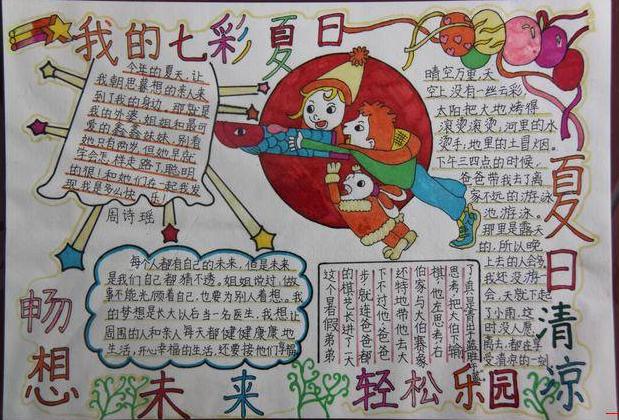 我的七彩夏日
今年的夏天,让
我朝思暮想的亲人来
到了我的身边,那就是
我的外婆、姐姐和最可
爱的淼淼妹妹,别看
她只有两岁,但她早就
学会怎样走路了,聪明
的狠!和她们在一起我发
现我是多么快乐!
周诗瑶
晴空万里,天
空上没有一丝云彩,
太阳把大地烤得
滚烫滚烫,河里的水
烫手,地里的土冒烟。
下午三四点的时候,
爸爸带我去了离
家不远的游泳
池游泳。
那里是露天
的,所以晚
上去的人会多
我还没游一
会,天就下起
了小雨,这
时没人愿
离去,都在享
受清凉的一刻
夏日清凉
每个人都有自己的未来,但是未来
是我们自己都猜不透。姐姐说过,做
事不能光顾着自己,也要为别人着想。我
的梦想是长大以后当一名医生,我想让
周围的人和亲人每天都健健康康地
生活,开心幸福的生活,还要接他们享福
畅想未来
思考,把大伯下输
棋!他左思考右
伯家与大伯赛象
还特地带他去大
下不过他,爸爸
步,就连爸爸都
的棋艺长进了一大
这个暑假弟弟
轻松乐园